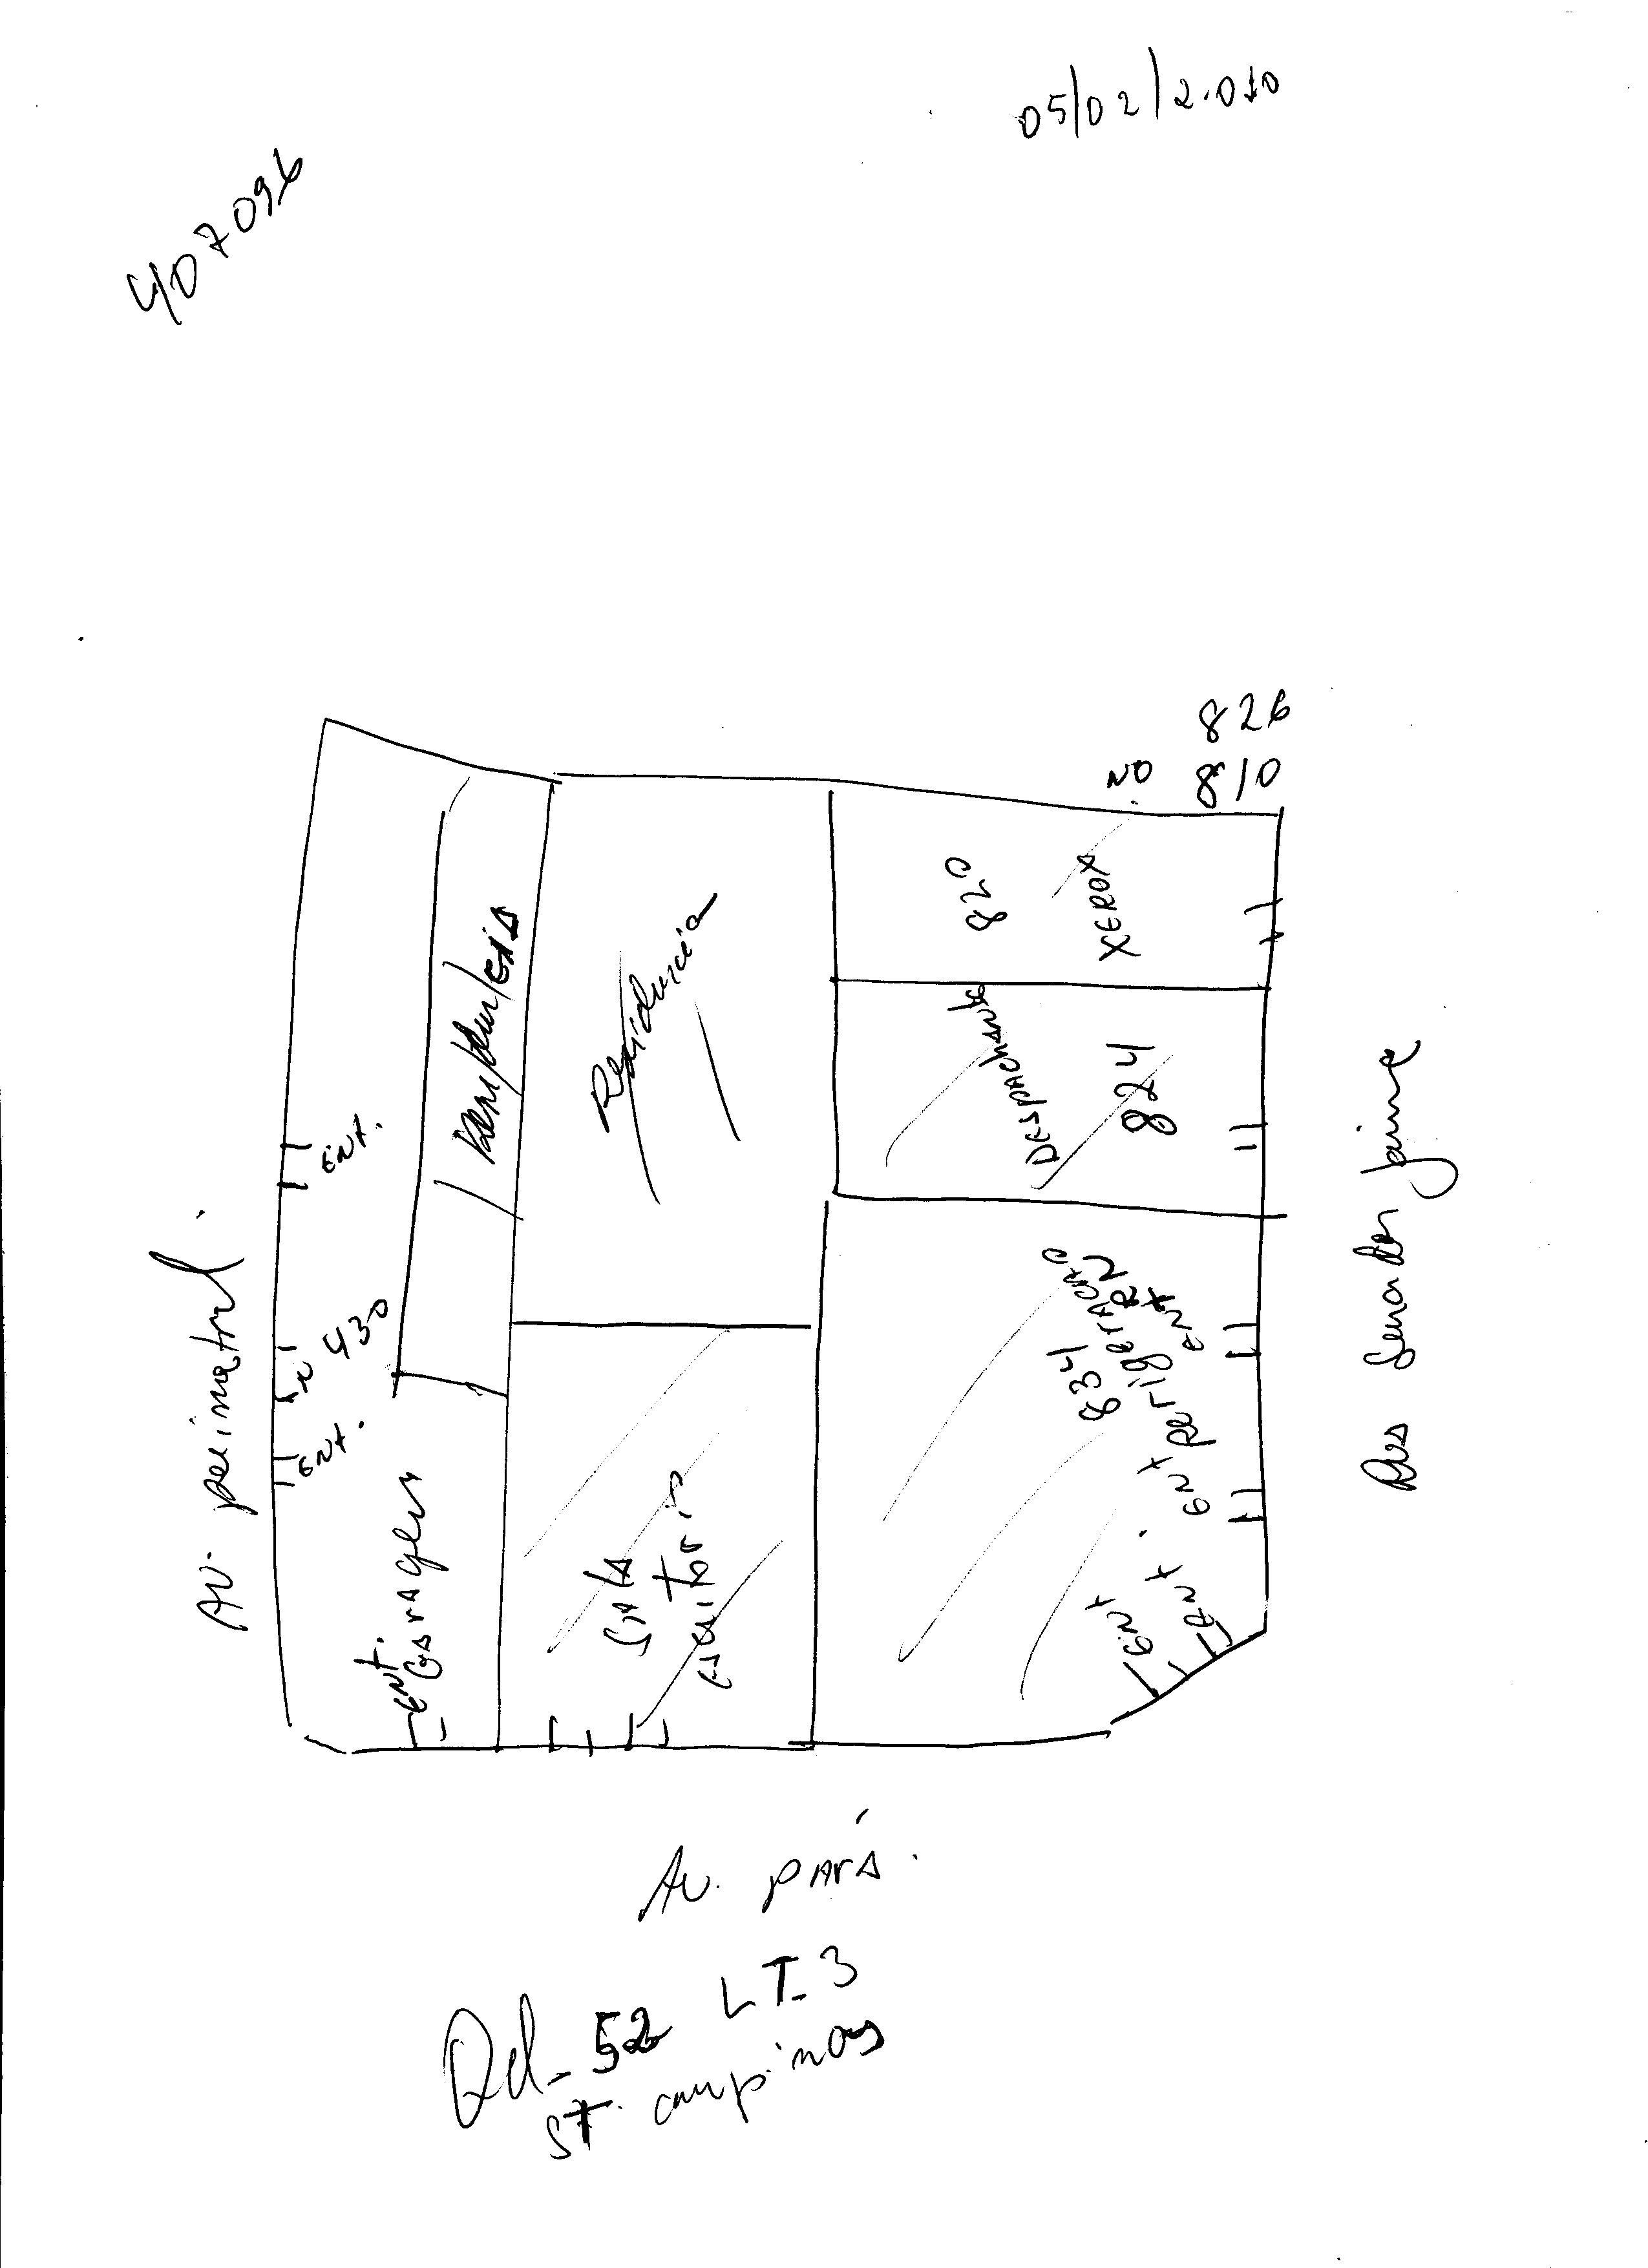 05/02/2.010
407096
826
NO 810
820
XEROX
Despachante
824
Residencia
ENT.
Av. perimetral.
N 430
ENT.
834
Refrigeração
ENT
ENT
ENT.
ENT.
Sala
escritorio
ENT.
Garagem
Rua Senador Jaime
Av. pará.
Qd- 52 LT-3
ST. campinas